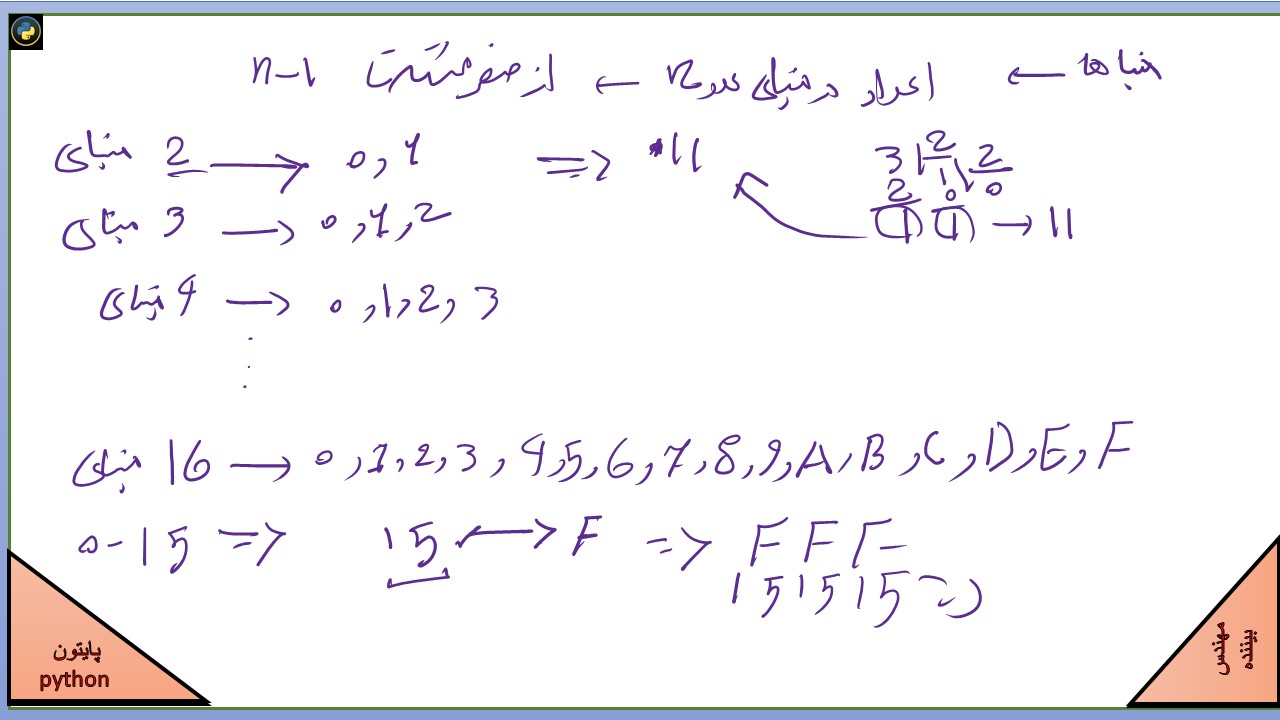 مبنا ها ← اعداد در مبنای عدد n ← از صفر هست n-1
مبنای 2 → 0, 1 => 11
3 2 2
2 1 0 0
1 1 → 11
مبنای 3 → 0, 1, 2
مبنای 4 → 0, 1, 2, 3
مبنای 16 → 0, 1, 2, 3, 4, 5, 6, 7, 8, 9, A, B, C, D, E, F
0-15 => 15 ↔ F => F F F
15 15 15 =>
پایتون
python
مهندس
بیننده